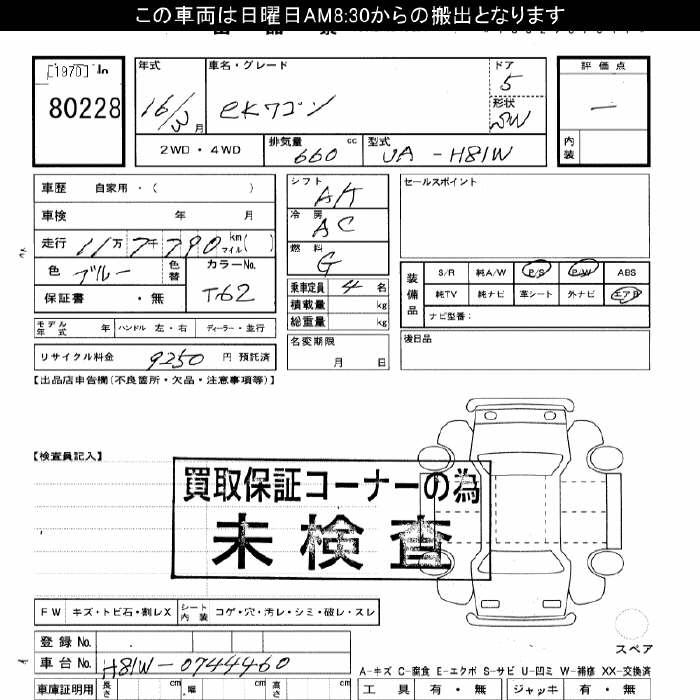 この車両は日曜日AM8:30からの搬出となります
[1970]
80228
年式 車名・グレード ドア 評価点
16/3月 eKワゴン 5
形状 SW
2WD・4WD 排気量 660 cc 型式 UA-H81W 内装
車歴 自家用・( )
シフト AT
セールスポイント
車検 年 月
冷房 AC
走行 11万7千790 km マイル( )
燃料 G
色 ブルー 色替 カラーNo. T62
装備品 S/R 純A/W P/S P/W ABS
保証書 ・無
乗車定員 4名
純TV 純ナビ 革シート 外ナビ エアB
積載量 kg
ナビ型番:
総重量 kg
モデル年式 年 ハンドル 左・右 ディーラー・並行
名変期限 月 日
後日品
リサイクル料金 9250 円 預託済
【出品店申告欄(不良箇所・欠品・注意事項等)】
【検査員記入】
買取保証コーナーの為
未検査
FW キズ・トビ石・割レX シート内装 コゲ・穴・汚レ・シミ・破レ・スレ
スペア
登録No.
車台No. H81W-0744460
A-キズ C-腐食 E-エクボ S-サビ U-凹ミ W-補修 XX-交換済
車庫証明用 長さ cm 幅 cm 高さ cm
工具 有・無 ジャッキ 有・無